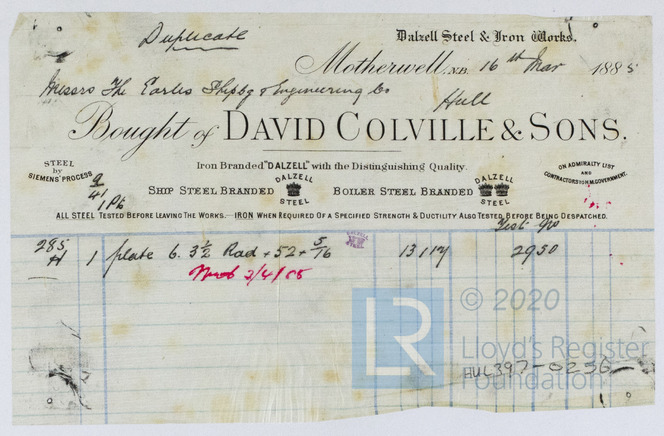 Duplicate
Dalzell Steel & Iron Works.
Motherwell, N.B. 16th Mar 1885
Messrs The Earles Shipbg & Engineering Co
Hull
Bought of DAVID COLVILLE & SONS.
Iron Branded "DALZELL" with the Distinguishing Quality.
STEEL by SIEMENS' PROCESS
SHIP STEEL BRANDED DALZELL STEEL BOILER STEEL BRANDED DALZELL STEEL
ON ADMIRALTY LIST AND CONTRACTORS TO H.M. GOVERNMENT.
ALL STEEL TESTED BEFORE LEAVING THE WORKS.—IRON WHEN REQUIRED OF A SPECIFIED STRENGTH & DUCTILITY ALSO TESTED BEFORE BEING DESPATCHED.
Test No
285 1 plate 6. 3 1/2 Rad + 52 + 5/16 2950
2/4/85
© 2020
LR
Lloyd's Register
Foundation
HUL397-0236